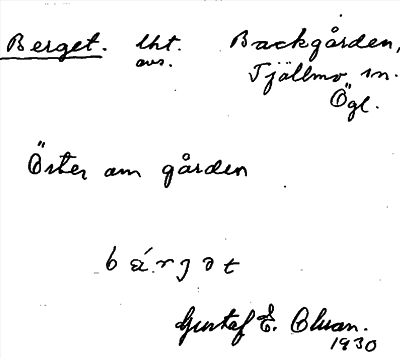 Berget. lht. Backgården,
avs. Tjällmo sn.
Ögl.
Öster om gården
bärjət
Gustaf E. 
1930